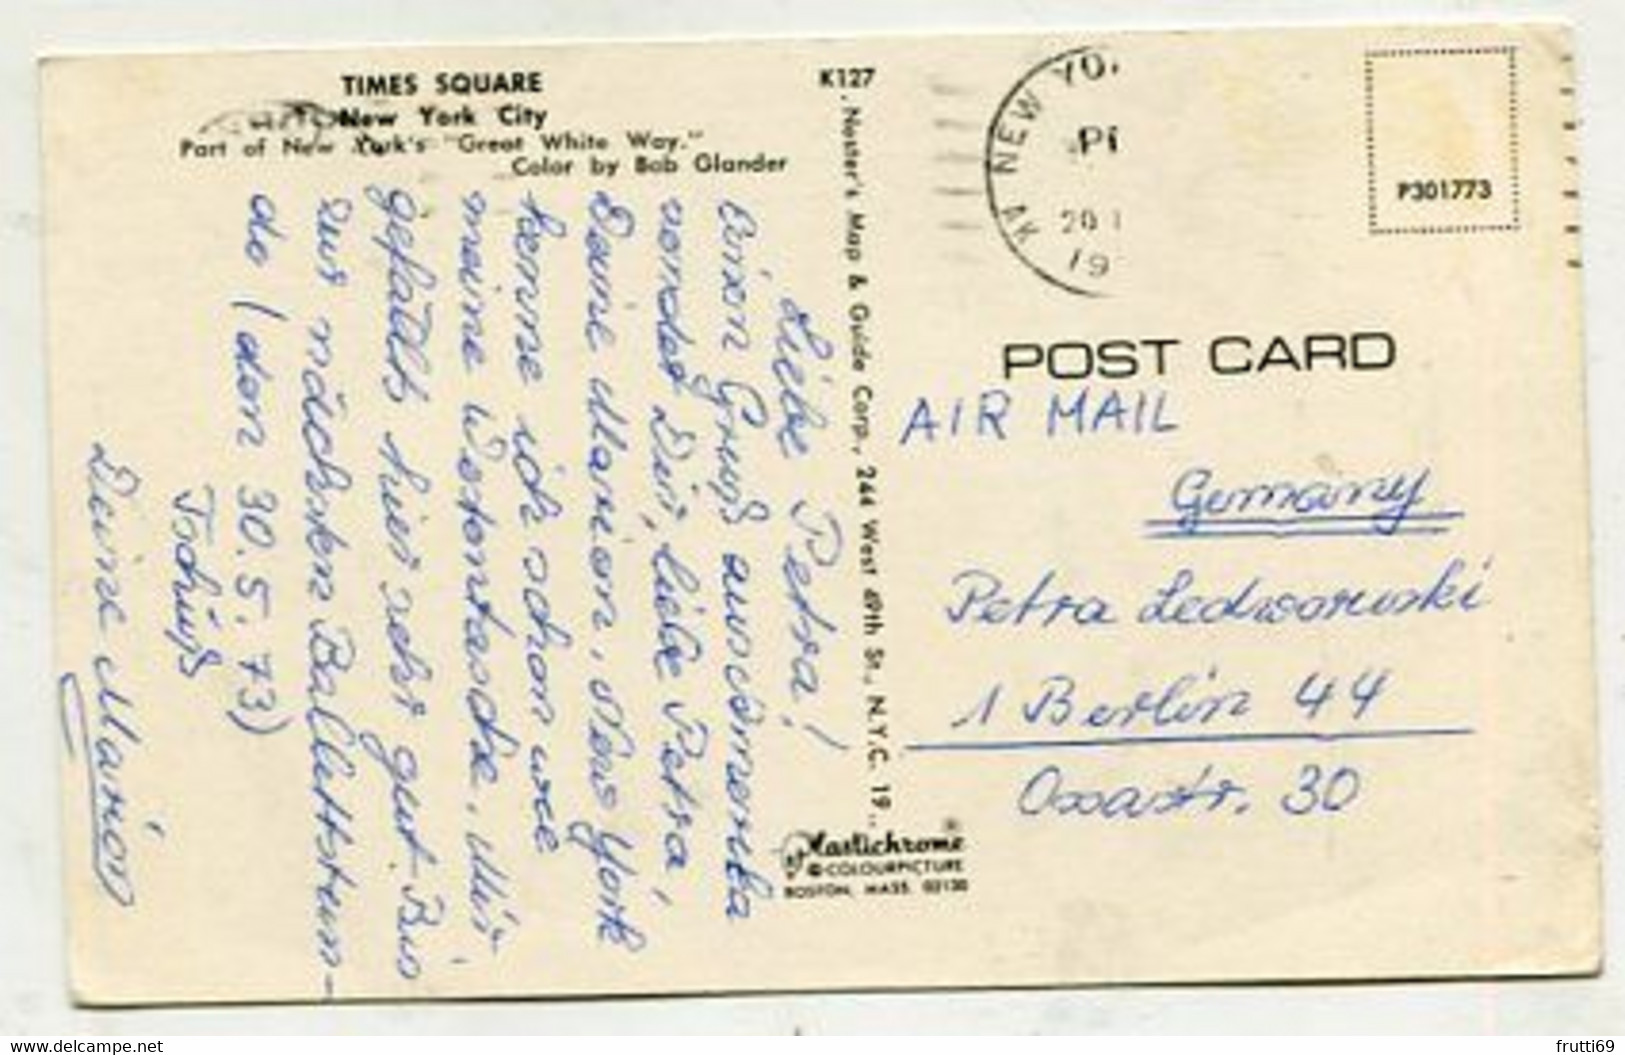 TIMES SQUARE
New York City
Part of New York's "Great White Way."
Color by Bob Glander
K127
Nester's Map & Guide Corp., 244 West 49th St., N.Y.C. 19
Liebe Petra!
Einen Gruß aus Amerika
sendet Dir, liebe Petra,
Deine Marion. New York
kenne ich schon wie
meine Westentasche. Mir
gefällt hier sehr gut. Bis
zur nächsten Ballettstun-
de (den 30.5.73)
Tschüß
Deine Marion
Plastichrome®
© COLOURPICTURE
BOSTON, MASS. 02130
NEW YO
20
19
P301773
POST CARD
AIR MAIL
Germany
Petra
1 Berlin 44
Ossastr. 30
frutti69